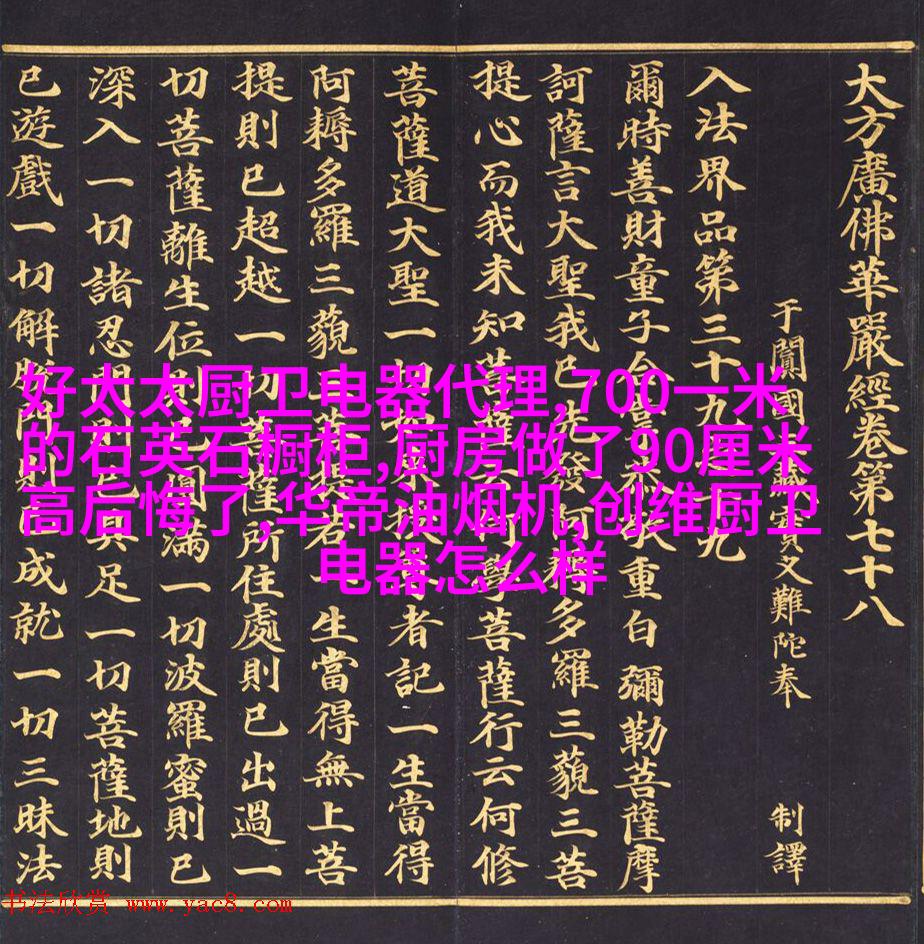 大方廣佛華嚴經卷第七十八
于闐國藏實叉難陀奉 制譯
入法界品第三十九之十九
爾時善財童子合重白彌勒菩薩摩
訶薩言大聖我已先發阿耨多羅三藐三菩
提心而我未知菩薩云何學菩薩行云何修
菩薩道大聖一切者記一生當得
阿耨多羅三藐三若一生當得無上菩
提則已超越一切菩薩所住處則已出過一
切菩薩離生位則已圓滿一切波羅蜜則已
深入一切諸忍門則已具足一切菩薩地則
已遊戲一切解脫門則已成就一切三昧法
好太太厨卫电器代理,700一米
的石英石橱柜,厨房做了90厘米
高后悔了,华帝油烟机,创维厨卫
电器怎么样
书法欣赏 www.yac8.com